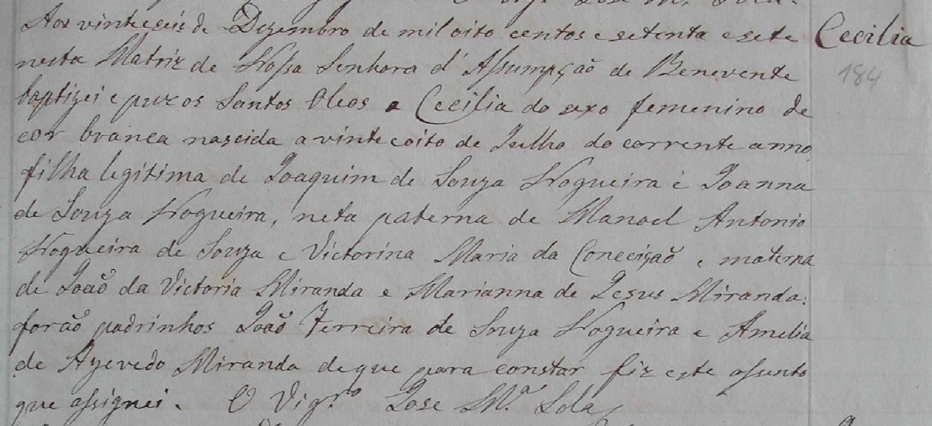 Aos vinteseis de Dezembro de mil oito centos e setenta e sete
Cecilia
184
nesta Matriz de Nossa Senhora d'Assumpção de Benevente
baptizei e puz os Santos Oleos a Cecilia do sexo femenino de
cor branca nascida a vinte e oito de Julho do corrente anno,
filha legitima de Joaquim de Souza Nogueira e Joanna
de Souza Nogueira, neta paterna de Manoel Antonio
Nogueira de Souza e Victorina Maria da Conceição e materna
de João da Victoria Miranda e Marianna de Jesus Miranda:
forão padrinhos João Ferreira de Souza Nogueira e Amelia
de Azevedo Miranda de que para constar fiz este assento
que assignei. O Vigr.º José M.ª Sola